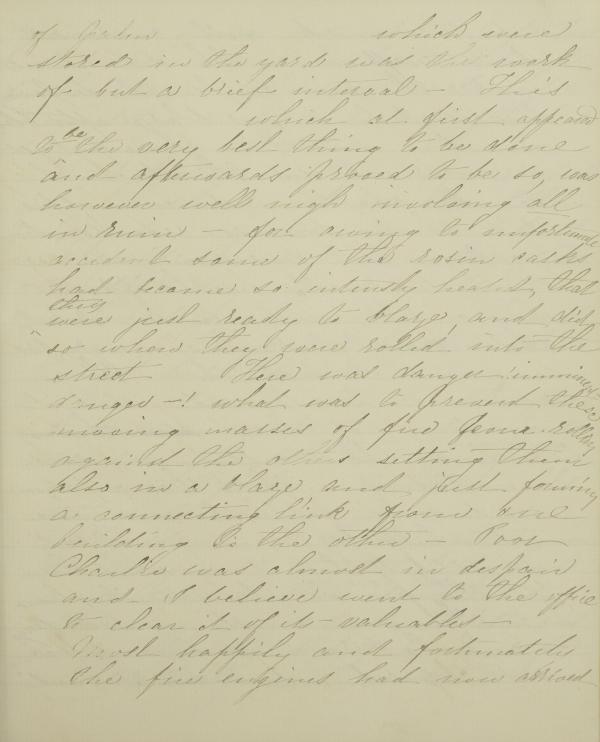 of which were
stored in the yard was the work
of but a brief interval – This
which at first appeared
to be the very best thing to be done
and afterwards proved to be so, was
however well nigh involving all
in ruin – for owing to unfortunate
accident some of the rosin casks
had become so intensely heated, that
they were just ready to blaze, and did
so when they were rolled into the
street Here was danger imminent
danger –! what was to prevent these
moving masses of fire from rolling
against the others setting them
also in a blaze and just forming
a connecting link from one
building to the other – Poor
Charlie was almost in despair
and I believe went to the office
to clear it of its valuables –
Most happily and fortunately
the fire engines had now arrived